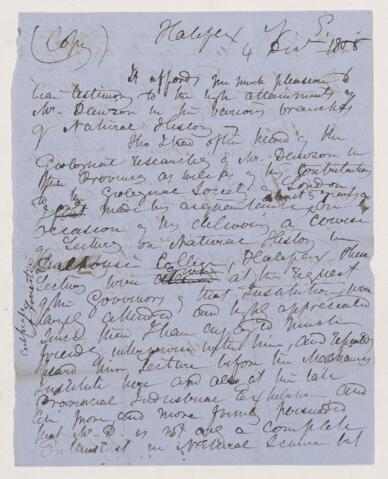 (Copy) Halifax N. S.
4 1855
It affords me much pleasure to
bear testimony to the high attainments of
Mr. Dawson in the various branches
of Natural History
I had often heard of the
Geological researches of Mr. Dawson in
this Province as well as of his Contributions
to the Geological Society of London
about 5 years ago
made his acquaintance on
occasion of his delivering a course
of Lectures on Natural History in
Dalhousie College, Halifax. These
Lectures were at the request
of the Governors of that Institution, were
largely attended and highly appreciated
Since then I have enjoyed much
friendly intercourse with him, and repeatedly
heard him Lecture before the Mechanics
Institute here and also at the late
Provincial Industrial Exhibition and
am more and more firmly persuaded
that Mr. D. is not only a complete
in Natural Science but